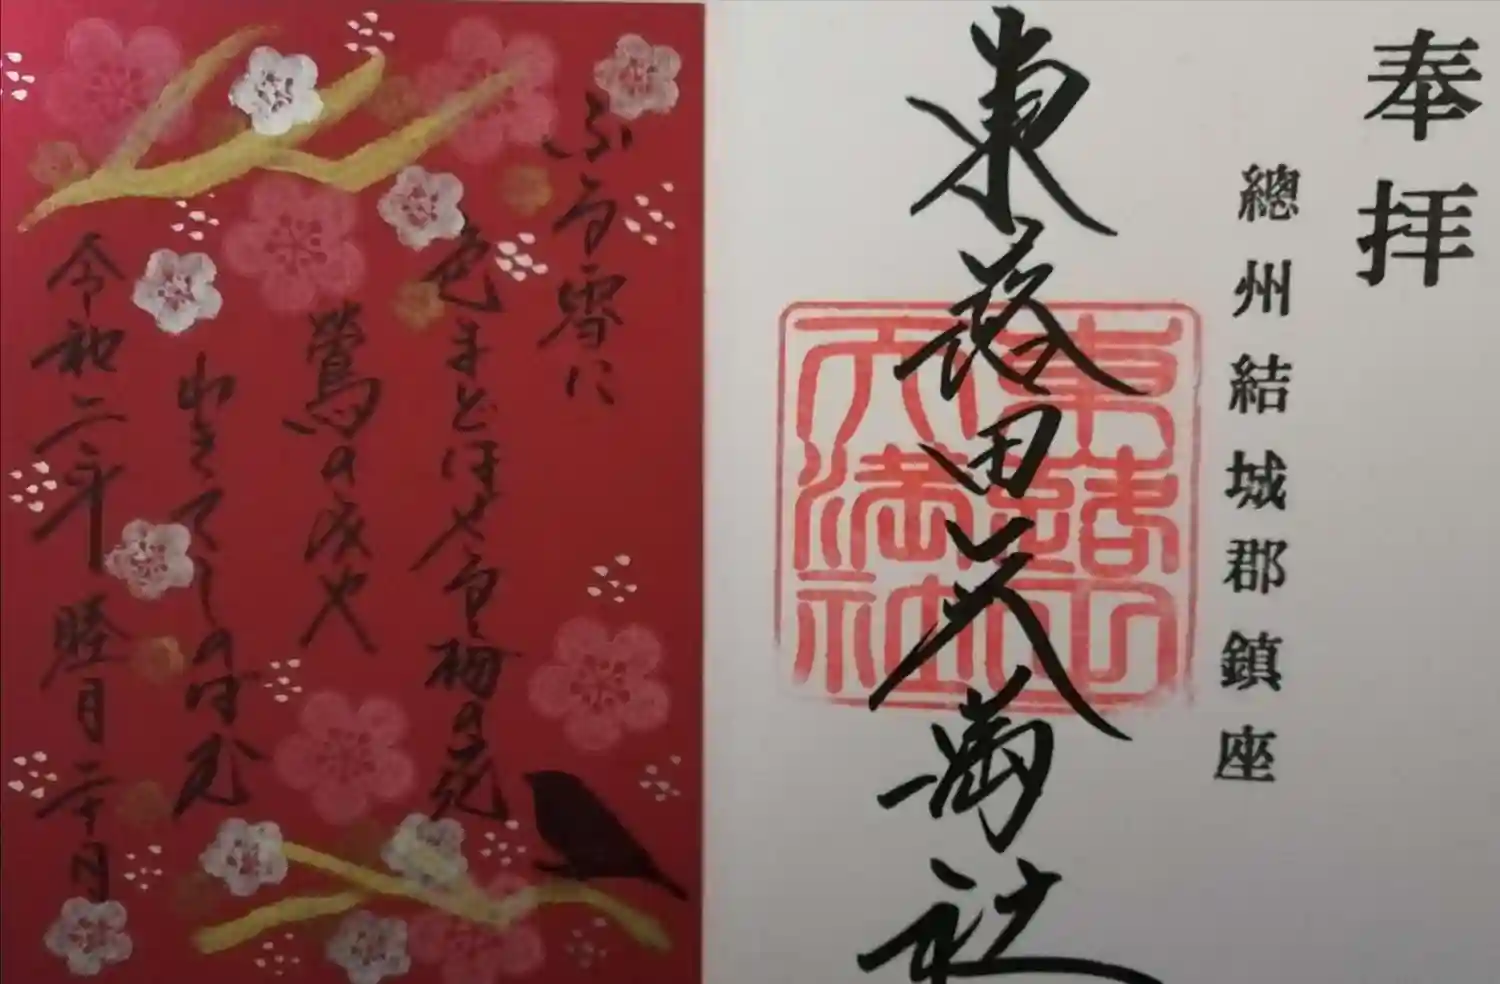 奉拝
總州結城郡鎮座
東蕗田天満社
東蕗田天満社
ふる雪に
色まどはせる梅の花
鶯のみや
わきてしのばむ
令和二年 睦月二十日